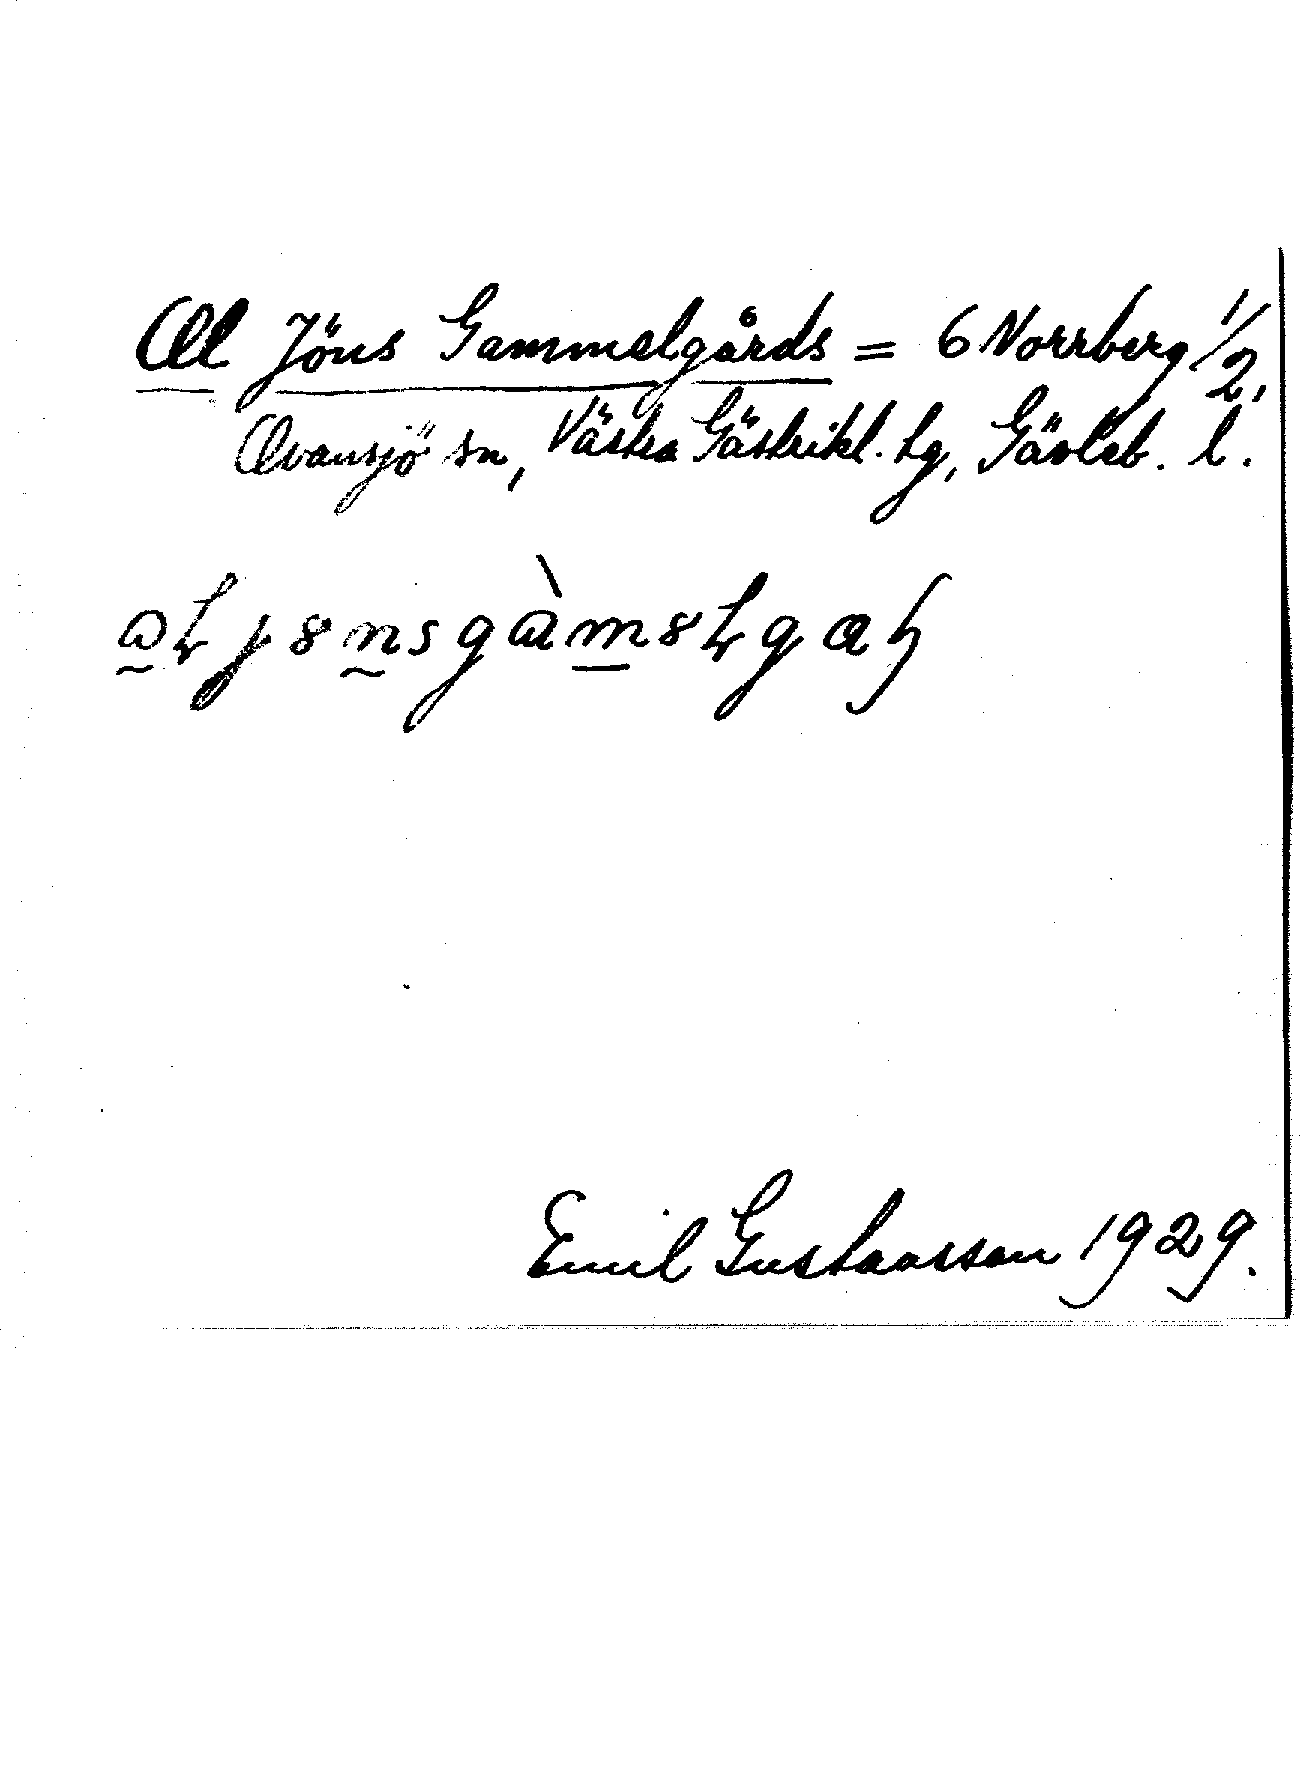 Ol Jöns Gammelgårds = 6 Norrberg 1/2,
Ovansjö sn, Västra Gästrikl. tg, Gävleb. l.
Emil Gustavsson 1929.